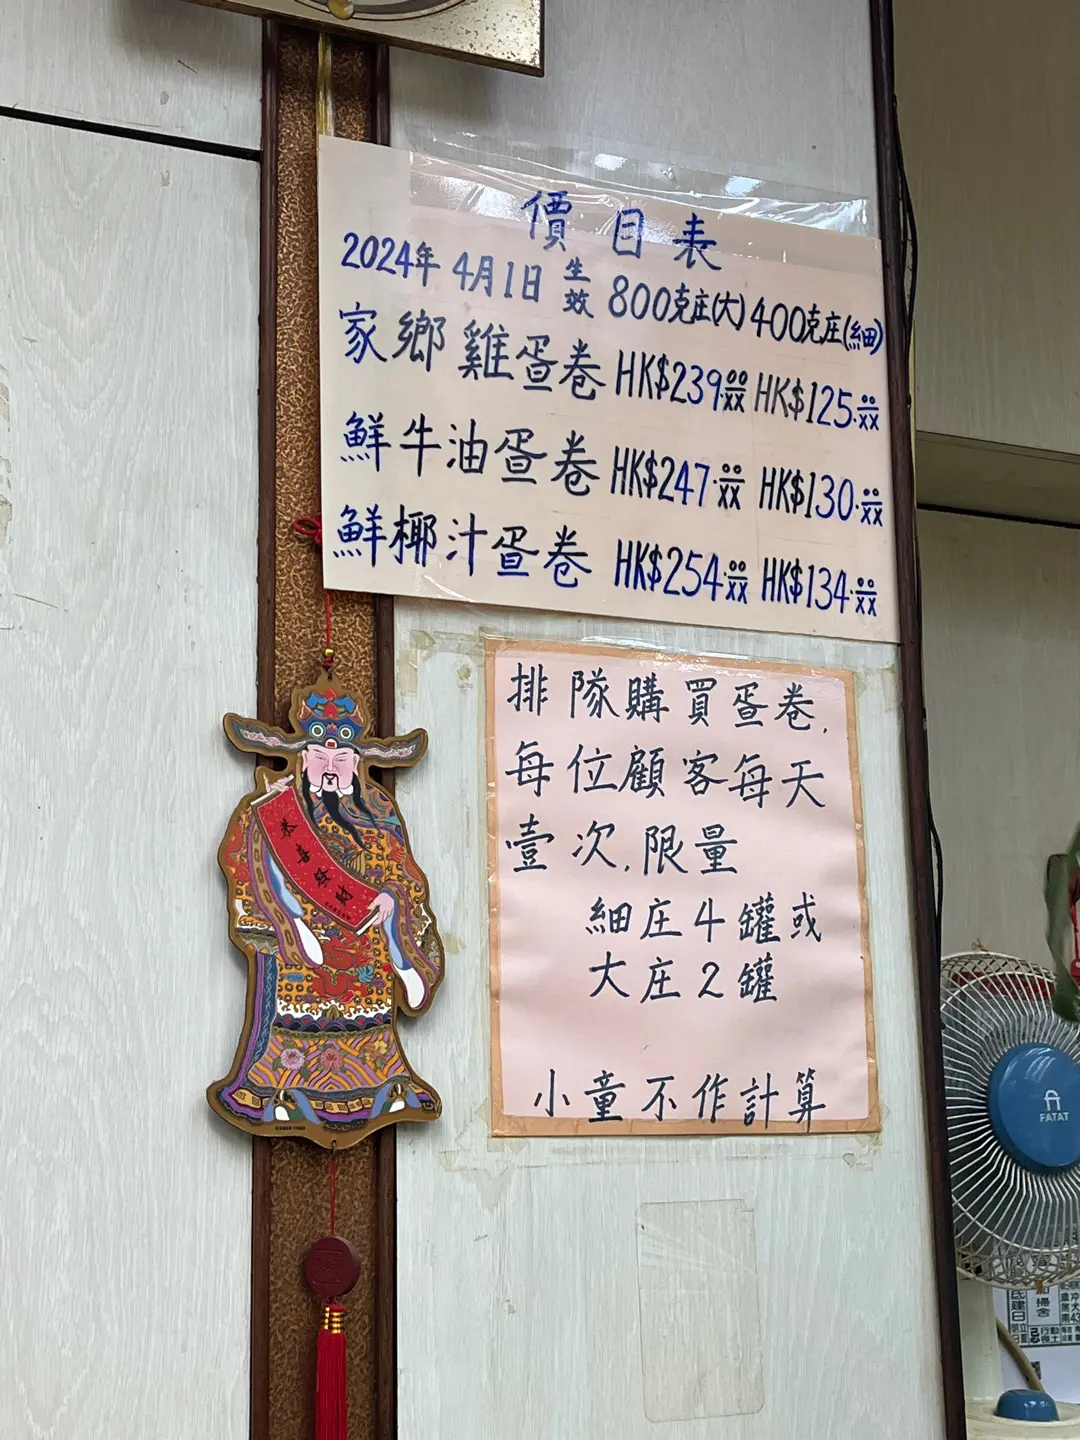 價目表
2024年 4月1日 生效 800克庄(大) 400克庄(細)
家鄉雞蛋卷 HK$239.00 HK$125.00
鮮牛油蛋卷 HK$247.00 HK$130.00
鮮椰汁蛋卷 HK$254.00 HK$134.00
排隊購買蛋卷,
每位顧客每天
壹次,限量
細庄4罐或
大庄2罐
小童不作計算
恭喜發財
FATAT